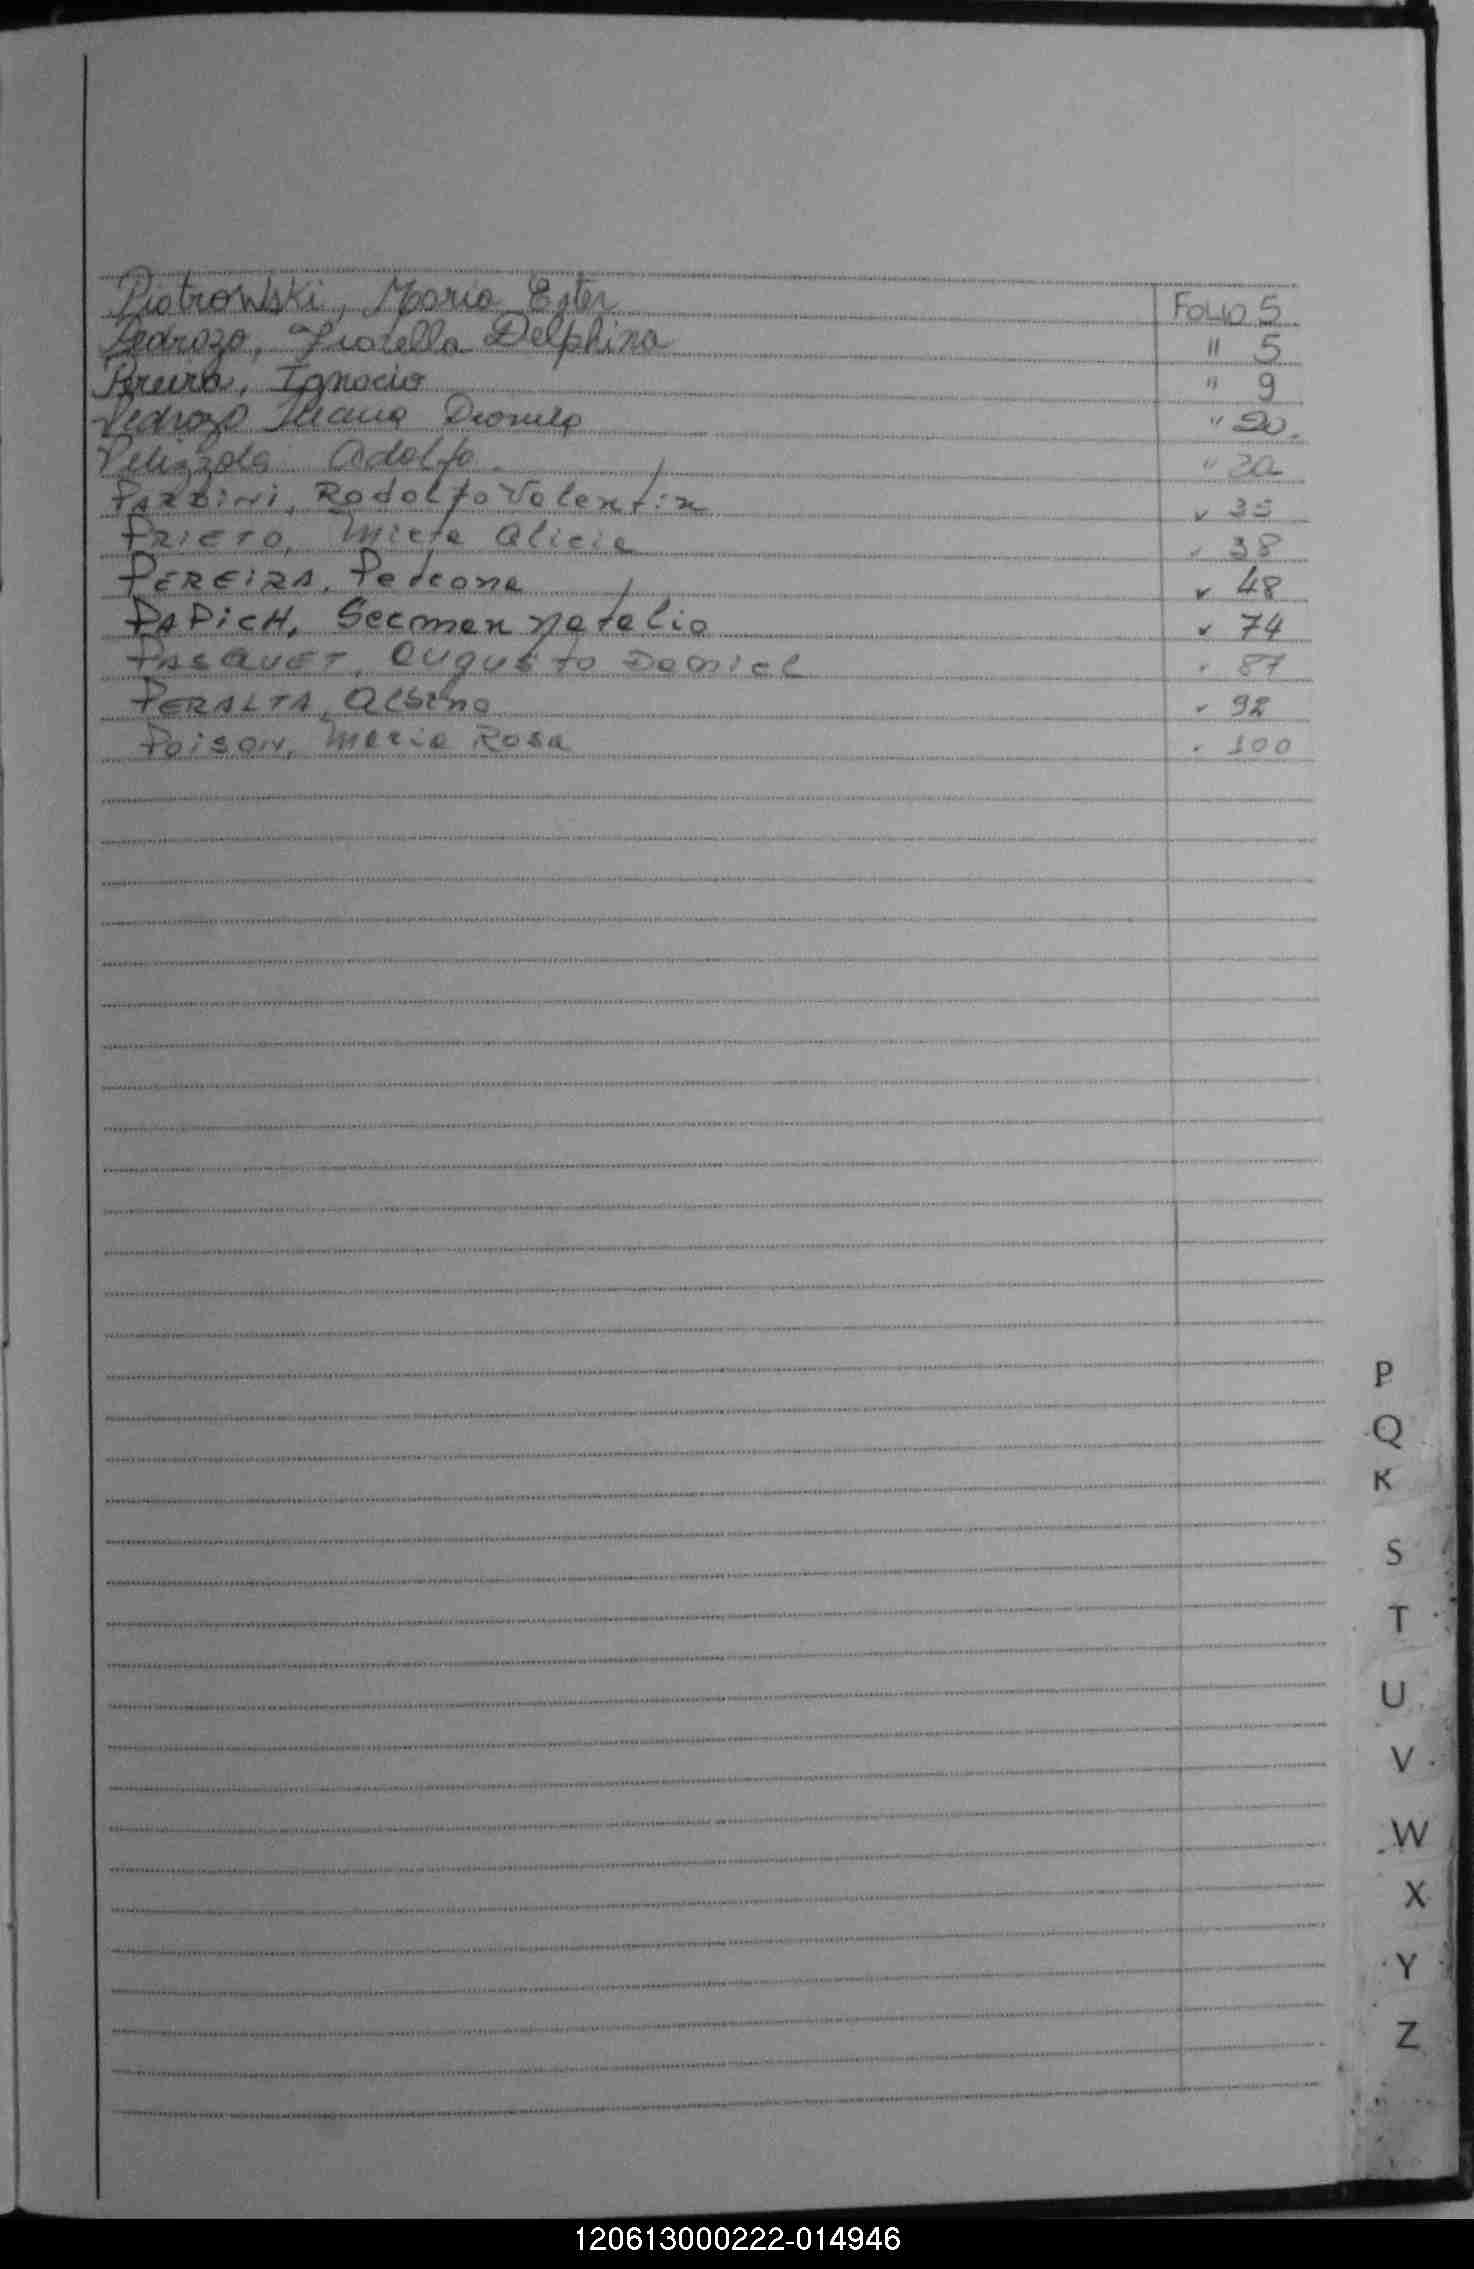 Piotrowski, Maria Ester Folio 5
Pedrozo, Fiorella Delphina " 5
Pereira, Ignacio " 9
Pedrozo " 20.
Adolfo. "
PARDINI, Rodolfo Valentín " 35
PRIETO, Mirta Alicia " 38
PEREIRA, Petrona " 48
PAPICH, Germán Natalio " 74
PASQUET, Augusto Daniel " 87
PERALTA, Albino " 92
Poison, María Rosa " 100
P
Q
R
S
T
U
V
W
X
Y
Z
120613000222-014946